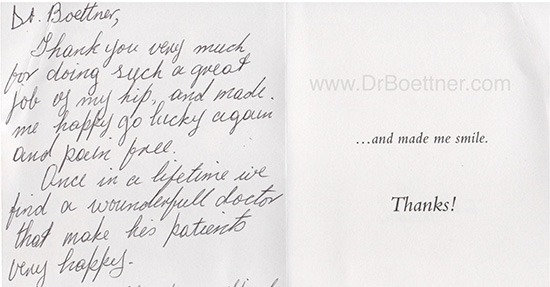 Dr. Boettner,
Thank you very much
for doing such a great
job of my hip, and made
me happy go lucky again
and pain free.
Once in a lifetime we
find a wounderfull doctor
that make his patients
very happy.
www.DrBoettner.com
...and made me smile.
Thanks!